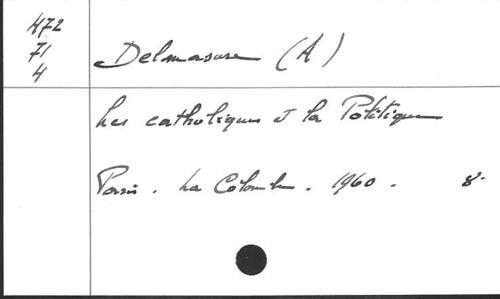 472
71
4
Delmasure (A)
Les catholiques et la Politique
Paris. La Colombe. 1960. 8°